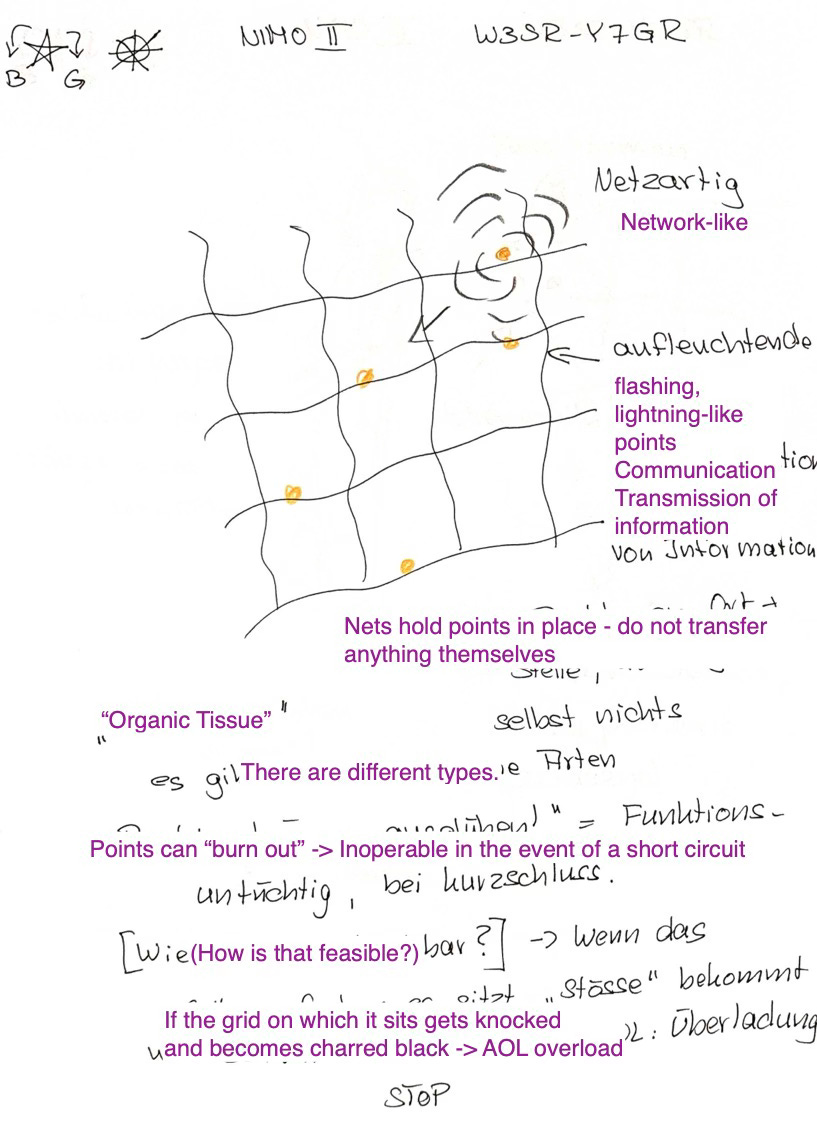 B G
NIMO II W3SR-Y7GR
Netzartig
Network-like
aufleuchtende
flashing,
lightning-like
points
Communication tion
Transmission of
information
von Information
Nets hold points in place - do not transfer
anything themselves
Stelle,
"Organic Tissue" "
selbst nichts
"
es gil There are different types. e Arten
ausglühen" = Funktions-
Points can "burn out" -> Inoperable in the event of a short circuit
untüchtig, bei kurzschluss.
[Wie (How is that feasible?) bar?] -> wenn das
sitzt "Stösse" bekommt
If the grid on which it sits gets knocked
and becomes charred black -> AOL overload : Überladung
STOP